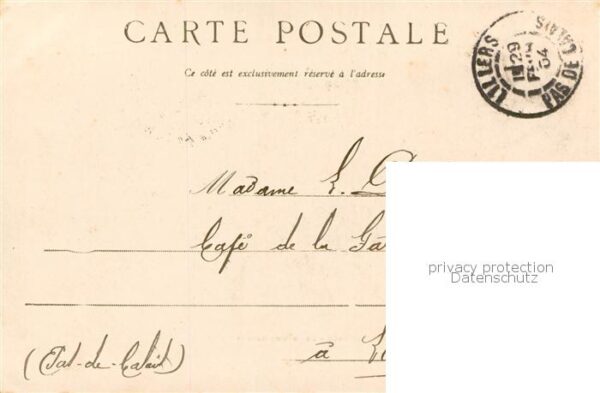 CARTE POSTALE
LILLERS
PAS DE CALAIS
29
04
Ce côté est exclusivement réservé à l'adresse
Madame
Café de la
privacy protection
Datenschutz
(Pas-de-Calais)
à